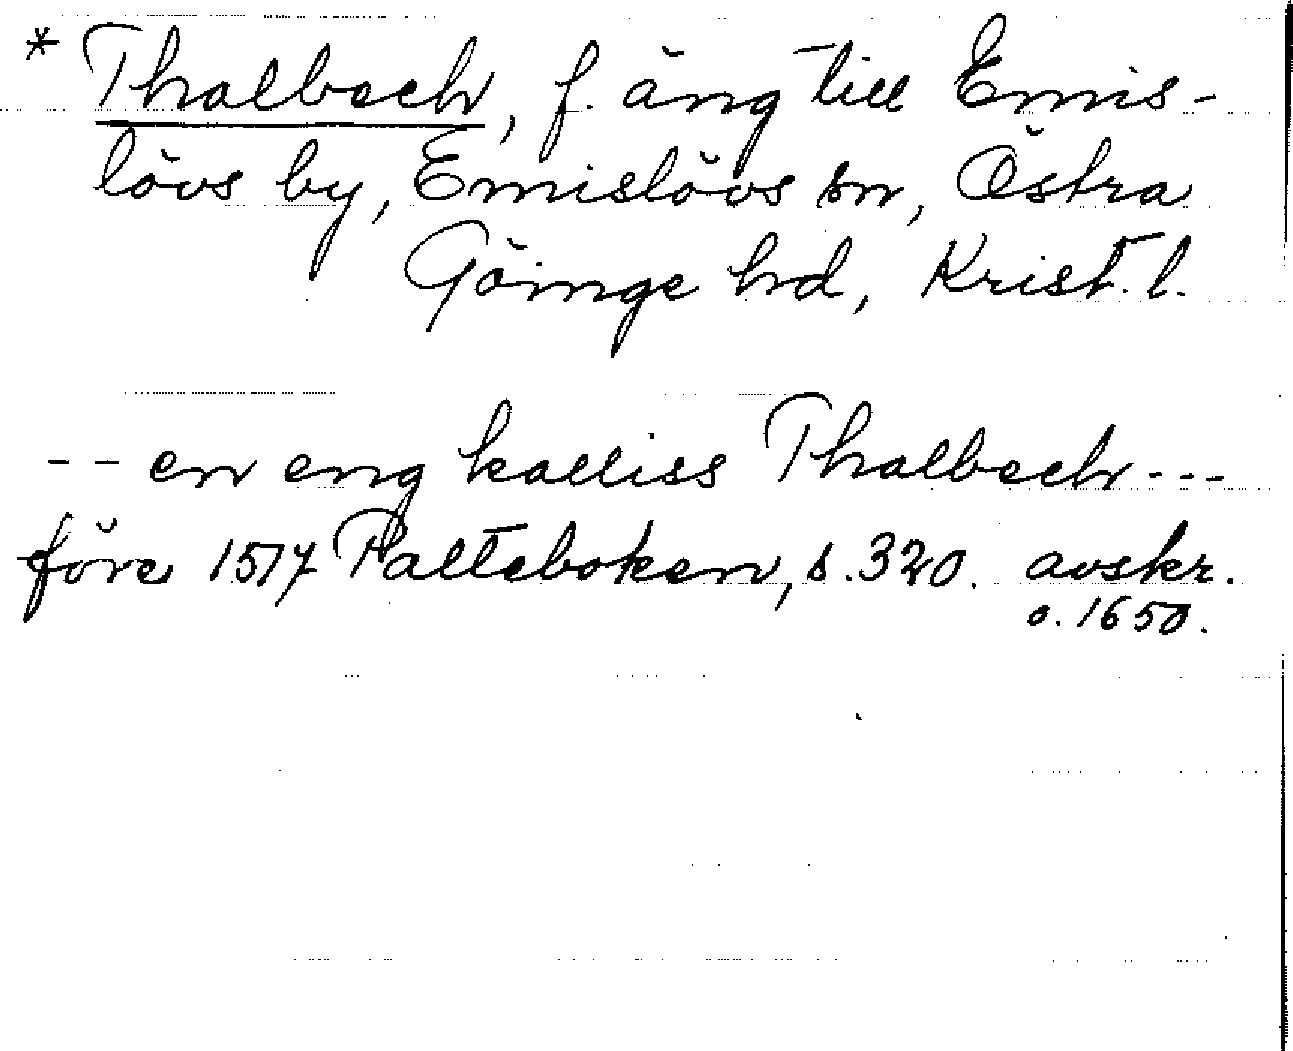 * Thalbech, f. äng till Emis-
lövs by, Emislövs sn, Östra
Göinge hd, Krist. l.
-- en eng kalliss Thalbech ---
före 1517 Palteboken, s. 320. avskr.
o. 1650.